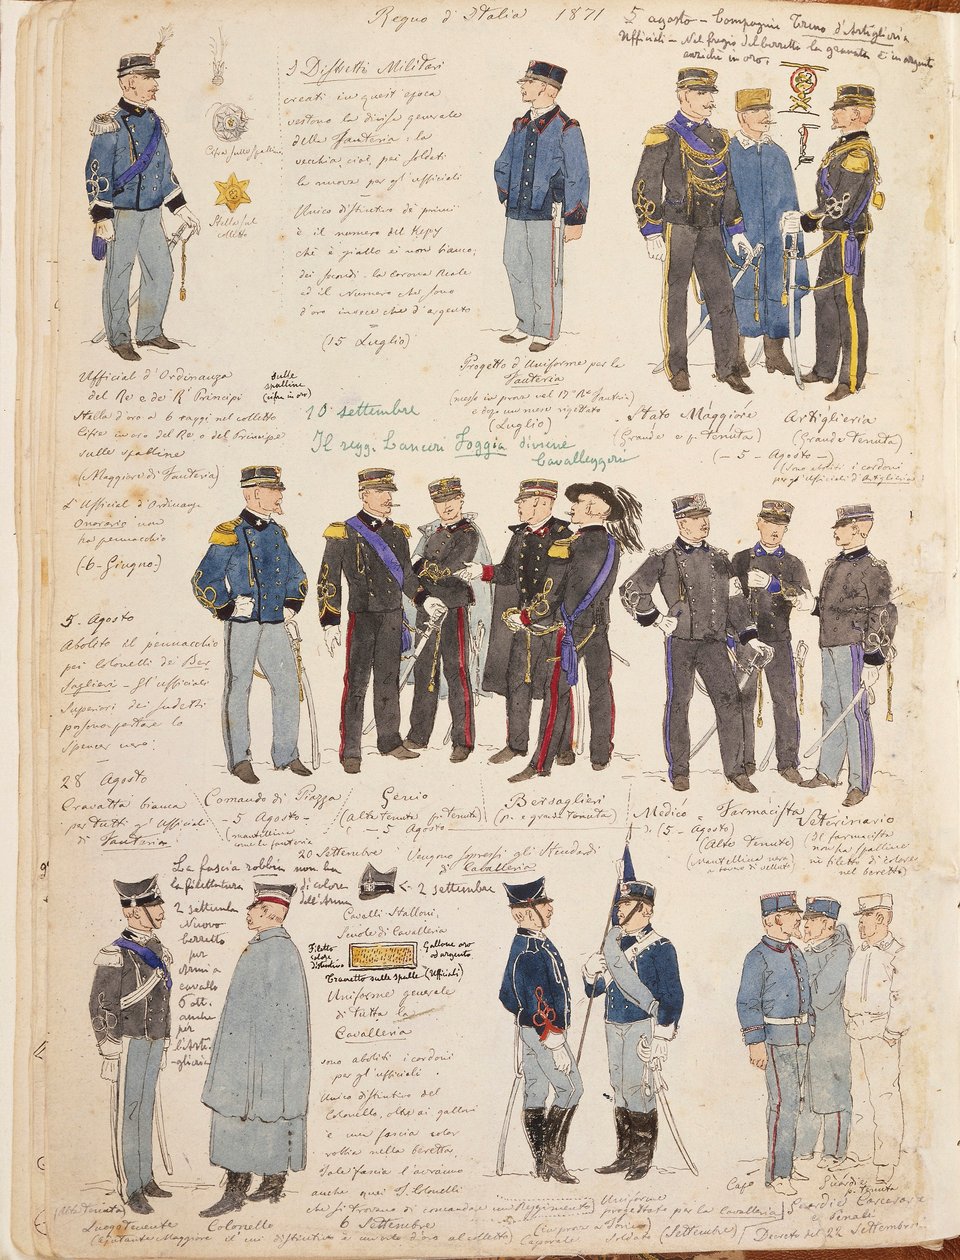 Regno d'Italia 1871
5 agosto - Compagnie Treno d'Artiglieria
Ufficiali - Nel fregio del berretto la granata è in argento
anzichè in oro.
I Distretti Militari
creati in quest'epoca
vestono la divisa generale
della Fanteria, la
vecchia cioè, pei Soldati
la nuova per gl'ufficiali
Unico distintivo de' primi
è il numero del Kepy
che è giallo e non bianco,
dei secondi la Corona Reale
ed il Numero che sono
d'oro invece che d'argento
(15 Luglio)
Cifra sulle spalline
Stella sul
colletto
Ufficial d'Ordinanza
del Re e de' Rⁱ Principi
sulle
spalline
(cifra in oro)
Stella d'oro a 6 raggi nel colletto
Cifre in oro del Re o del Principe
sulle spalline
(Maggiore di Fanteria)
L'Ufficial d'Ordinanza
Onorario non
ha pennacchio
(-6- Giugno)
Progetto d'Uniforme per la
Fanteria
(messo in prova nel 17° Rº Fanteria
e dopo un mese rigettato
(Luglio)
Stato Maggiore
(Grande e p. tenuta)
Artiglieria
(Grande tenuta)
(- 5 - Agosto -)
(Sono aboliti i cordoni
per gl'ufficiali d'Artiglieria)
10 settembre
Il regg. Lancieri Foggia diviene
Cavalleggeri
5. Agosto
Abolito il pennacchio
pei Colonelli dei Ber
saglieri - gl'ufficiali
Superiori dei sudetti
possono portare lo
Spencer nero.
28 Agosto
Cravatta bianca
per tutti gl'Ufficiali
di Fanteria
Comando di Piazza
- 5 Agosto -
(mantellina
come la fanteria
Genio
(Alta tenuta p. tenuta)
(- 5 Agosto
Bersaglieri
(p. e grande tenuta)
Medico = Farmacista Veterinario
(5 - Agosto)
(Alta Tenuta)
(Mantellina nera
a bavero di velluto)
Il farmacista
non ha spalline
nè filetto di colore
nel beretto
20 Settembre Vengono soppressi gli Stendardi
di Cavalleria
La fascia robbio non ha
la filettatura di colore
dell'Arma
2 settembre
Nuovo
berretto
per
Armi a
cavallo
6 ott.
anche
per
l'Arti-
glieria
<- 2 settembre
Cavalli-Stalloni,
Scuole di Cavalleria
Filetto
colore
distintivo
Gallone oro
od argento
Travetto sulle spalle (Ufficiali)
Uniforme generale
di tutta la
Cavalleria
sono aboliti i cordoni
per gl'ufficiali.
Unico distintivo del
Colonello, oltre ai galloni
è una fascia color
robbia nella beretta,
Tale fascia l'avranno
anche quei T. Colonelli
che si trovano di comandare un Reggimento
6 Settembre
(Alta Tenuta)
Luogotenente
Colonello
(Aiutante Maggiore il cui distintivo è un volo d'oro al colletto)
Caporale
Uniforme
progettata per la Cavalleria
Soldato (Settembre)
Capo
Guardie
p. tenuta
Guardie Carcerarie
e Penali
(Decreto del 22 Settembre)